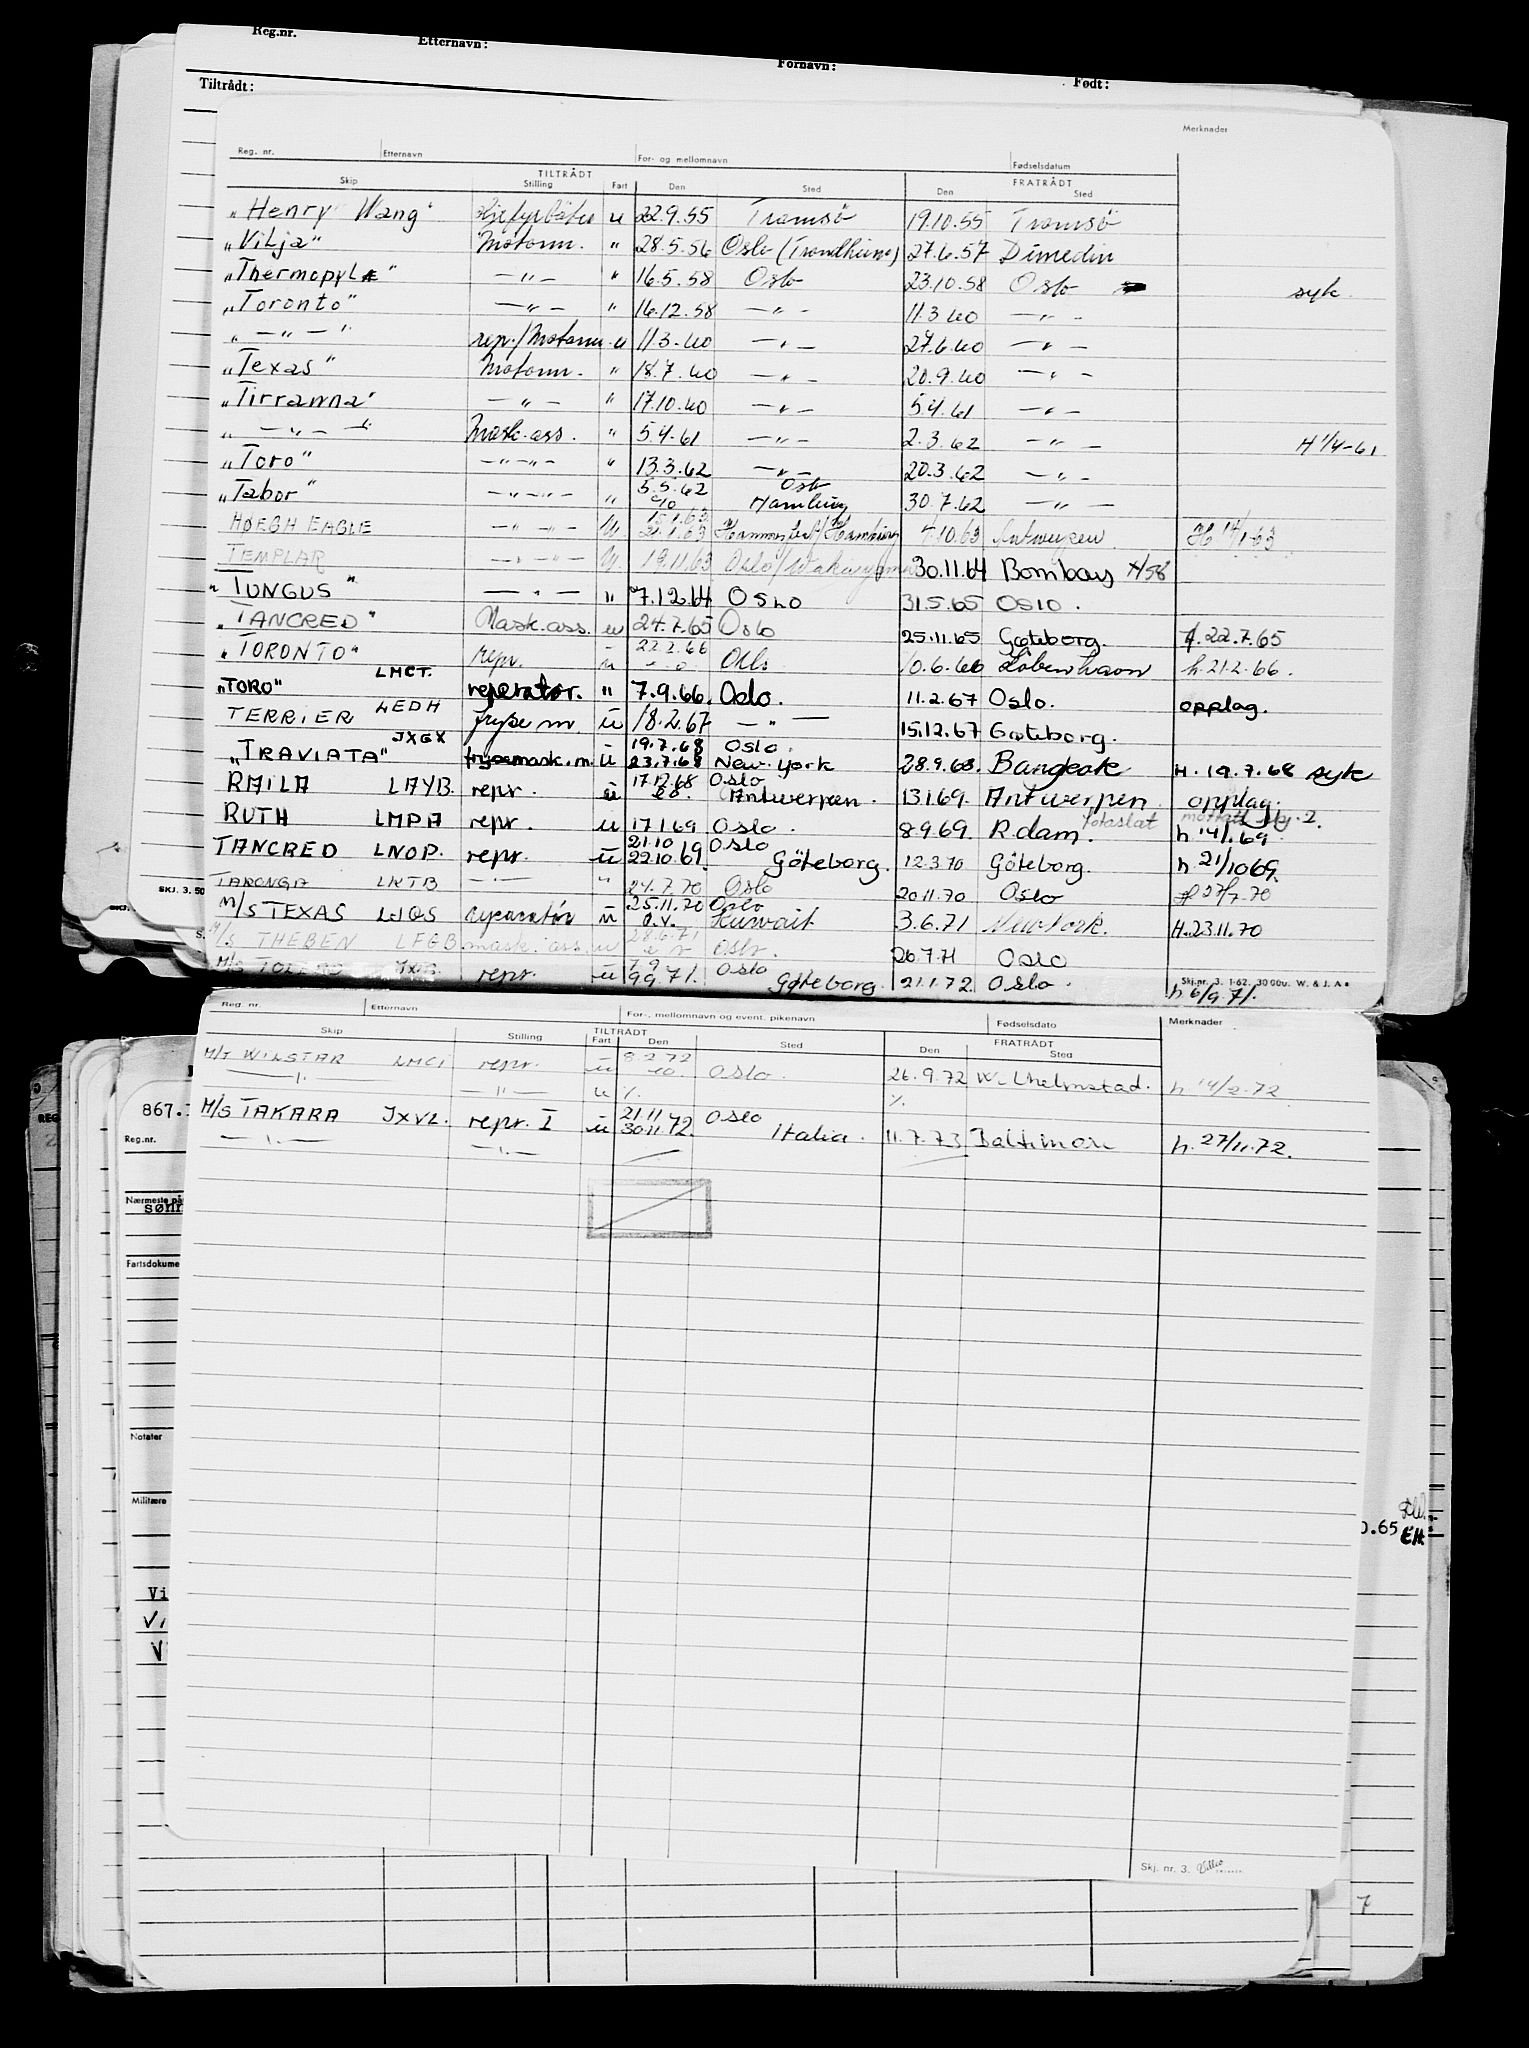 Reg.nr. Etternavn: Fornavn: Født:
Tiltrådt:
Merknader
Reg. nr. Etternavn For- og mellomnavn Fødselsdatum
TILTRÅDT FRATRÅDT
Skip Stilling Fart Den Sted Den Sted
"Henry Wang" u 22.9.55 Tromsö 19.10.55 Tromsö
"Vilja" Motorm. " 28.5.56 Oslo (Trondheim) 27.6.57 Dunedin
"Thermopylæ" — " — " 16.5.58 Oslo 23.10.58 Oslo syk.
"Toronto" — " — " 16.12.58 — " — 11.3.60 — " —
" — " — " rep./Motorm. u 11.3.60 — " — 27.6.60 — " —
"Texas" Motorm. " 18.7.60 — " — 20.9.60 — " —
"Tirranna" — " — " 17.10.60 — " — 5.4.61 — " —
" — " — " Mask.ass. " 5.4.61 — " — 2.3.62 — " — H 1/4-61
"Toro" — " — " — " 13.3.62 — " — 20.3.62 — " —
"Tabor" — " — " — " 5.5.62 Oslo Hamburg 30.7.62 — " —
HØEGH EAGLE — " — " — U. Hammerfest/Hamburg 4.10.63 Antwerpen H 14/1-63
TEMPLAR — " — " — U. 19.11.63 Oslo/ 30.11.64 Bombay
"TUNGUS" — " — " 7.12.64 OSLO 31.5.65 OSLO.
"TANCRED" Mask.ass. u 24.7.65 Oslo 25.11.65 Gøteborg. 22.7.65
"TORONTO" repr. u 22.2.66 Oslo 10.6.66 København h.21.2.66.
"TORO" LMCT. reperatør. " 7.9.66. Oslo. 11.2.67 Oslo. opplag.
TERRIER LEDH fryse m. u 18.2.67 — " — 15.12.67 Gøteborg.
"TRAVIATA" JXGX frysemask.m. u 19.7.68 Oslo. 23.7.68 New-York 28.9.68. Bangkok H.19.7.68 syk
RAILA LAYB. repr. u 17.12.68 Oslo Antwerpen. 13.1.69. Antwerpen opplag.
RUTH LMPA repr. u 17.1.69 Oslo. 8.9.69. R.dam. h 14/1.69.
TANCRED LNOP. repr. u 21.10 Oslo 22.10.69. Göteborg. 12.3.70 Göteborg. h. 21/10 69.
TARONGA LKTB — " — " 24.7.70 Oslo 20.11.70 Oslo
M/S TEXAS LJQS reparatør u 25.11.70 Oslo Kuwait 3.6.71 New York. H.23.11.70
M/S THEBEN LFGB mask. ass. u 28.6.71 Oslo. 26.7.71 Oslo
M/S repr. u 9.9.71. Oslo Gøteborg. 21.1.72. Oslo. h 6/9.71.
SKJ. 3. 50
Skj.nr. 3. 1-62. 3000u. W. & J. A s
Reg. nr. Etternavn For-, mellomnavn og event. pikenavn Fødselsdato Merknader
TILTRÅDT FRATRÅDT
Skip Stilling Fart Den Sted Den Sted
M/T WILSTAR LMCI repr. u 8.2.72 Oslo. 26.9.72 Wilhelmstad. h 14/2.72
— " — — " — u ./. ./.
M/S TAKARA JXVL. repr. I u 21.11 Oslo 30.11.72. Italia. 11.7.73 Baltimore h.27/11.72.
— " — — " —
867.
Reg.nr.
Nærmeste på
Fartsdokume
Notater
Militære
0.65 EH.
Vi
Vi
V
Skj. nr. 3.
7